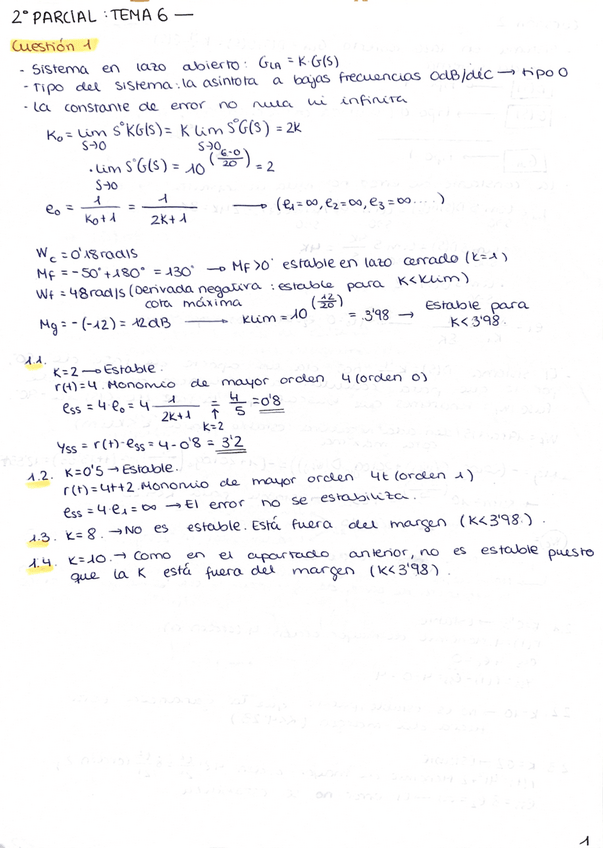 2º PARCIAL : TEMA 6 —
Cuestión 1
- Sistema en lazo abierto: GLA = K·G(s)
- Tipo del sistema: la asíntota a bajas frecuencias 0dB/déc → tipo 0
- La constante de error no nula ni infinita
K₀ = lim S°KG(s) = K lim S°G(s) = 2K
S→0 S→0
· lim S°G(s) = 10^(6-0/20) = 2
S→0
e₀ = 1/(K₀+1) = 1/(2K+1) → (e₁=∞, e₂=∞, e₃=∞....)
Wc = 0'18rad/s
MF = -50°+180° = 130° → MF>0° estable en lazo cerrado (K=1)
Wf = 48rad/s (Derivada negativa : estable para K<Klim)
cota máxima
Mg = -(-12) = 12dB → Klim = 10^(12/20) = 3'98 → Estable para
K<3'98.
1.1.
K=2 → Estable.
r(t)=4. Monomio de mayor orden 4 (orden 0)
ess = 4·e₀ = 4 1/(2K+1) = 4/5 = 0'8
↑
K=2
Yss = r(t)-ess = 4-0'8 = 3'2
1.2. K=0'5 → Estable.
r(t)=4t+2. Monomio de mayor orden 4t (orden 1)
ess = 4·e₁ = ∞ → El error no se estabiliza.
1.3. K=8. → No es estable. Está fuera del margen (K<3'98.).
1.4. K=10. → Como en el apartado anterior, no es estable puesto
que la K está fuera del margen (K<3'98).
1